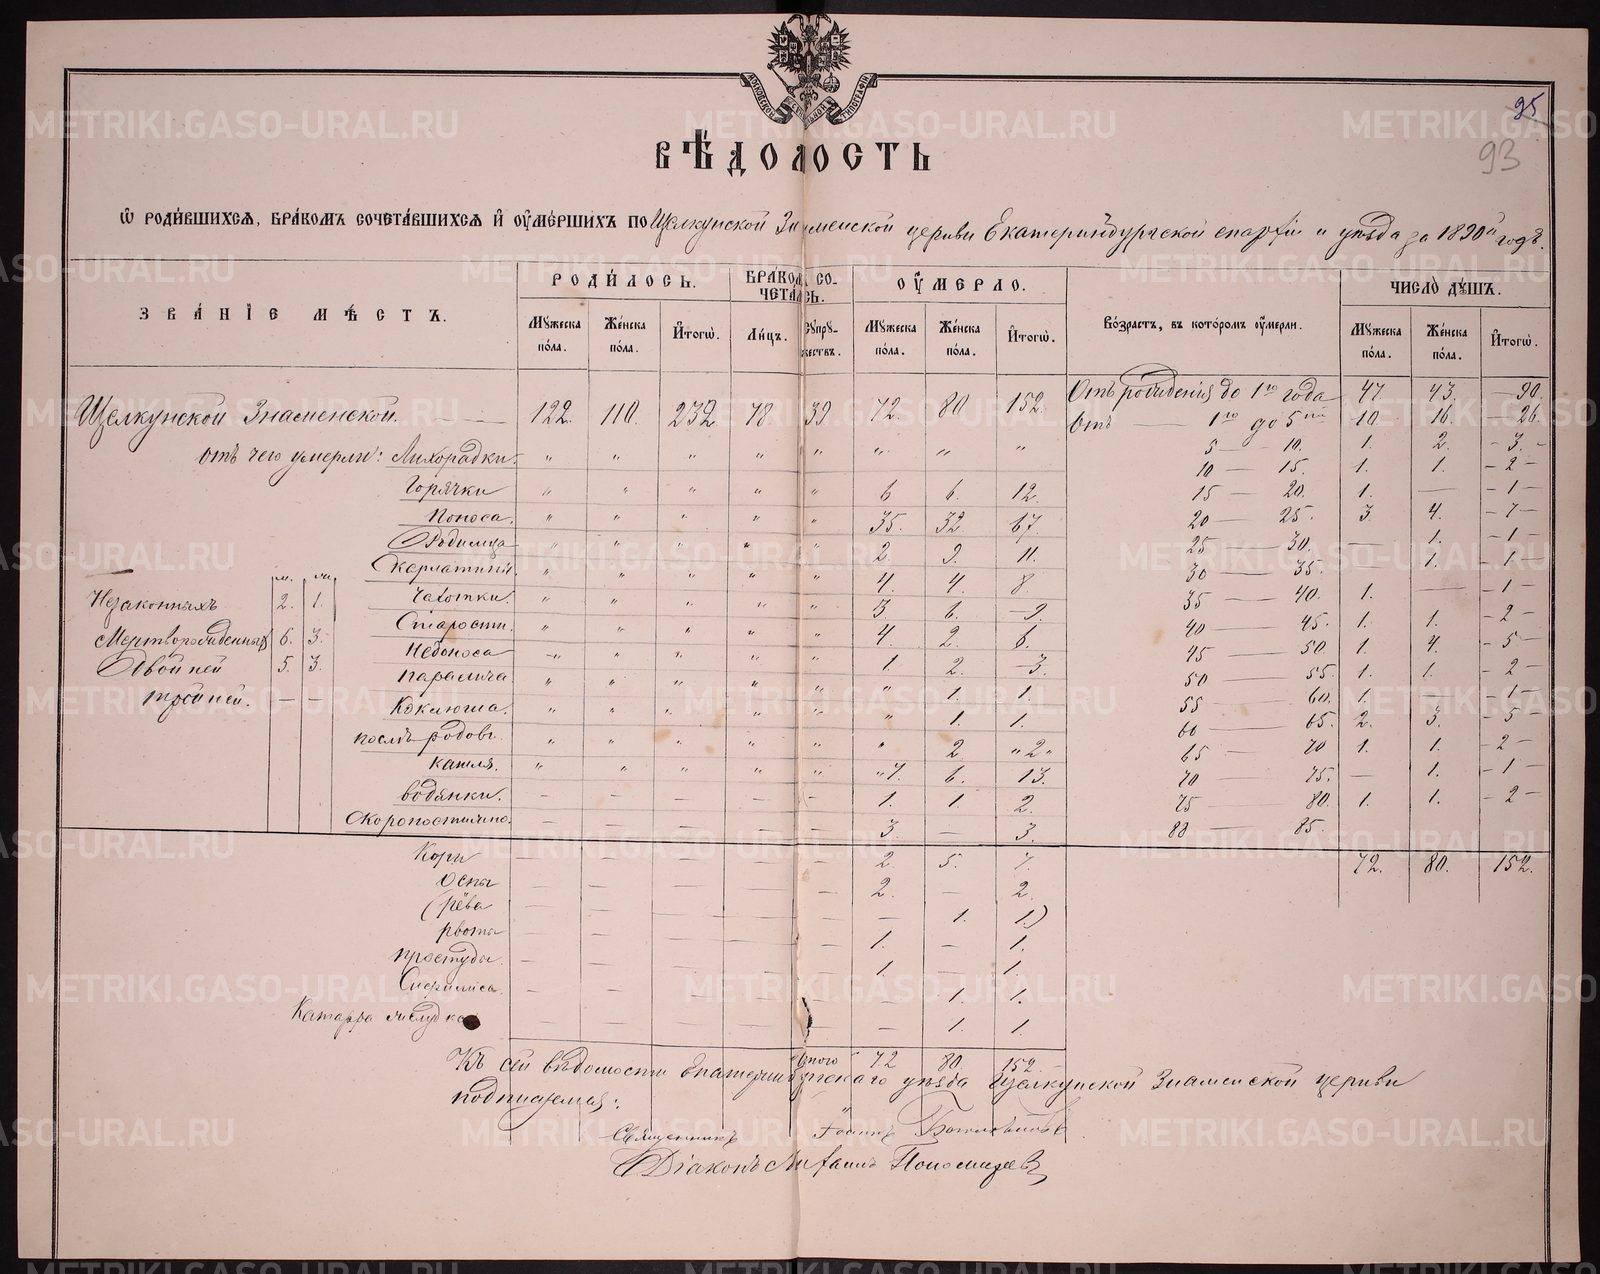 МОСКОВСКОЙ СѴНОДАЛЬНОЙ ТИПОГРАФІИ
95
93
ВѢДОМОСТЬ
Ѡ РОДИВШИХСЯ, БРАКОМЪ СОЧЕТАВШИХСЯ И ОУМЕРШИХЪ ПО Щелкунской Знаменской церкви Екатеринбургской епархіи и уѣзда за 1890й годъ.
ЗВАНІЕ МѢСТЪ. РОДИЛОСЬ. БРАКОМЪ СОЧЕТАЛОСЬ. ОУМЕРЛО. Возрастъ, въ которомъ оумерли. ЧИСЛО ДУШЪ.
Мужеска пола. Женска пола. Итогѡ. Лицъ. Супружествъ. Мужеска пола. Женска пола. Итогѡ. Мужеска пола. Женска пола. Итогѡ.
Щелкунской Знаменской. 122. 110. 232. 78. 39. 72. 80 152.
отъ чего умерли: Лихорадки. " " " " " " " "
Горячки " " " " " 6 6. 12.
Поноса. " " " " " 35. 32. 67.
Родимца " " " " " 2. 9. 11.
Скарлатины. " " " " " 4. 4. 8.
Чахотки. " " " " " 3. 6. – 9.
Старости. " " " " " 4. 2. 6.
Недоноса " " " " " 1. 2. – 3.
паралича " " " " " " 1. 1.
Коклюша. " " " " " " 1. 1.
послѣ родовъ. " " " " " " 2 " 2 "
кашля. " " " " " 7. 6. 13.
водянки. – – – – – 1. 1 2.
Скоропостижно. – – – – – 3. – 3.
Кори – – – – – 2. 5. 7.
Оспы – – – – – 2. – 2.
(рёва – – – – – – 1. 1.)
рвоты – – – – – 1. – 1.
простуды. – – – – – 1. – 1.
Сифилиса. – – – – – – 1. 1.
Катарра желудка – – – – – – 1. 1.
итого 72 80. 152.
м. ж.
Незаконныхъ 2. 1.
Мертворожденныхъ 6. 3.
Двойней 5. 3.
тройней. –
Отъ рожденія до 1го года 47 43. – 90.
Отъ — 1го до 5ти 10. 16. – 26.
5 — 10. 1. 2. – 3. –
10 — 15. 1. 1. – 2 –
15 — 20. 1. — – 1 –
20 — 25. 3. 4. – 7 –
25 — 30. — 1. – 1 –
30 — 35. — 1. – 1 –
35 — 40. 1. — – 1 –
40 — 45. 1. 1. – 2 –
45 — 50 1. 4. – 5 –
50 — 55. 1. 1. – 2 –
55 — 60. 1. – 1 –
60 — 65. 2. 3. – 5 –
65 — 70 1. 1. – 2 –
70 — 75. — 1. – 1 –
75 — 80. 1. 1. – 2 –
80 — 85.
72. 80. 152.
Къ сей вѣдомости Екатеринбургскаго уѣзда Щелкунской Знаменской церкви
подписуемся:
Священникъ Іоаннъ
Діаконъ Михаилъ Пономаревъ
METRIKI.GASO-URAL.RU